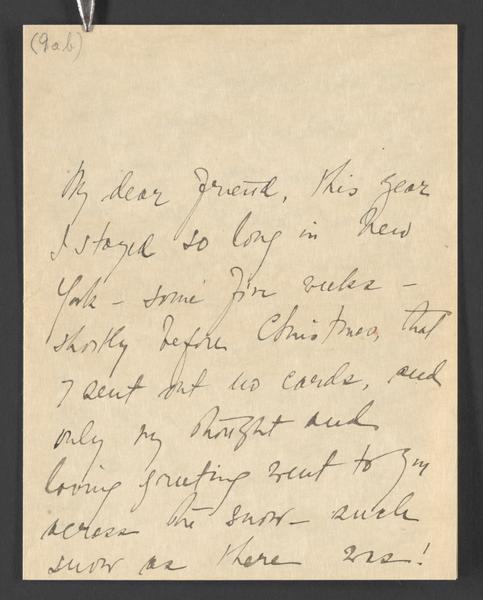 (9ab)
My dear friend, this year
I stayed so long in New
York - some five weeks -
shortly before Christmas, that
I sent out no cards, and
only my thought and
loving greeting went to you
across the snow - such
snow as there was!